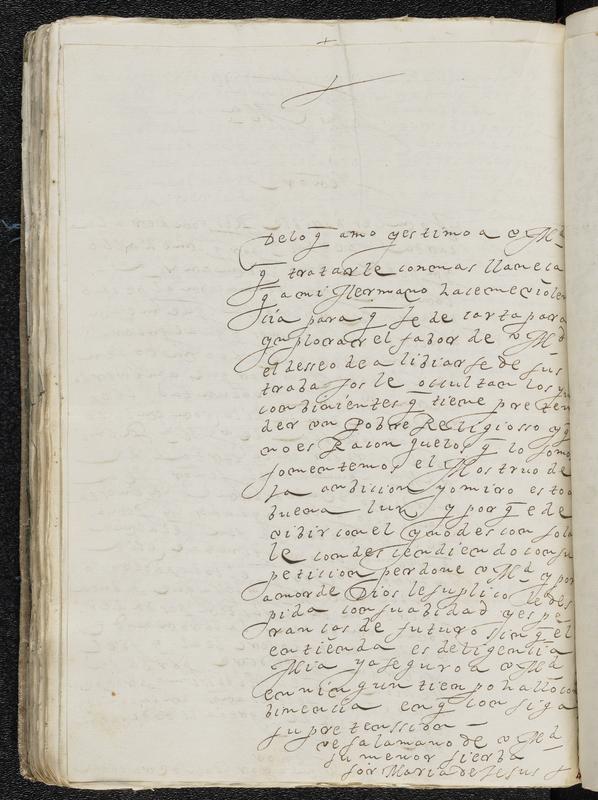 +
De lo q̄ amo y estimo a v Md
q̄ tratarle con mas llaneça
q̄ a mi Hermano haceme violen
cia para q̄ le de carta para
ynplorar el fabor de v Md
el desseo de alibiarse de sus
trabajos le ocultan los yn
conbinientes q̄ tiene preten
der vn Pobre Religiosso y q̄
no es Racon q̄ los q̄ lo somos
fomentemos el Mostruo de
La anbicion yo miro esto a
buena luz y porq̄ e de
vibir con el y no desconsola
le condescendiendo con su
peticion perdone v Md y por
amor de Dios le suplico le des
pida con suabidad y espe
rancas de futuro sin q̄ el
entienda es deligencia
Mia y aseguro a v Md
en ningun tienpo hallo con
binencia en q̄ consiga
su pretenssion
vesa la mano de v Md
su menor sierba
Sor Maria de Jesus